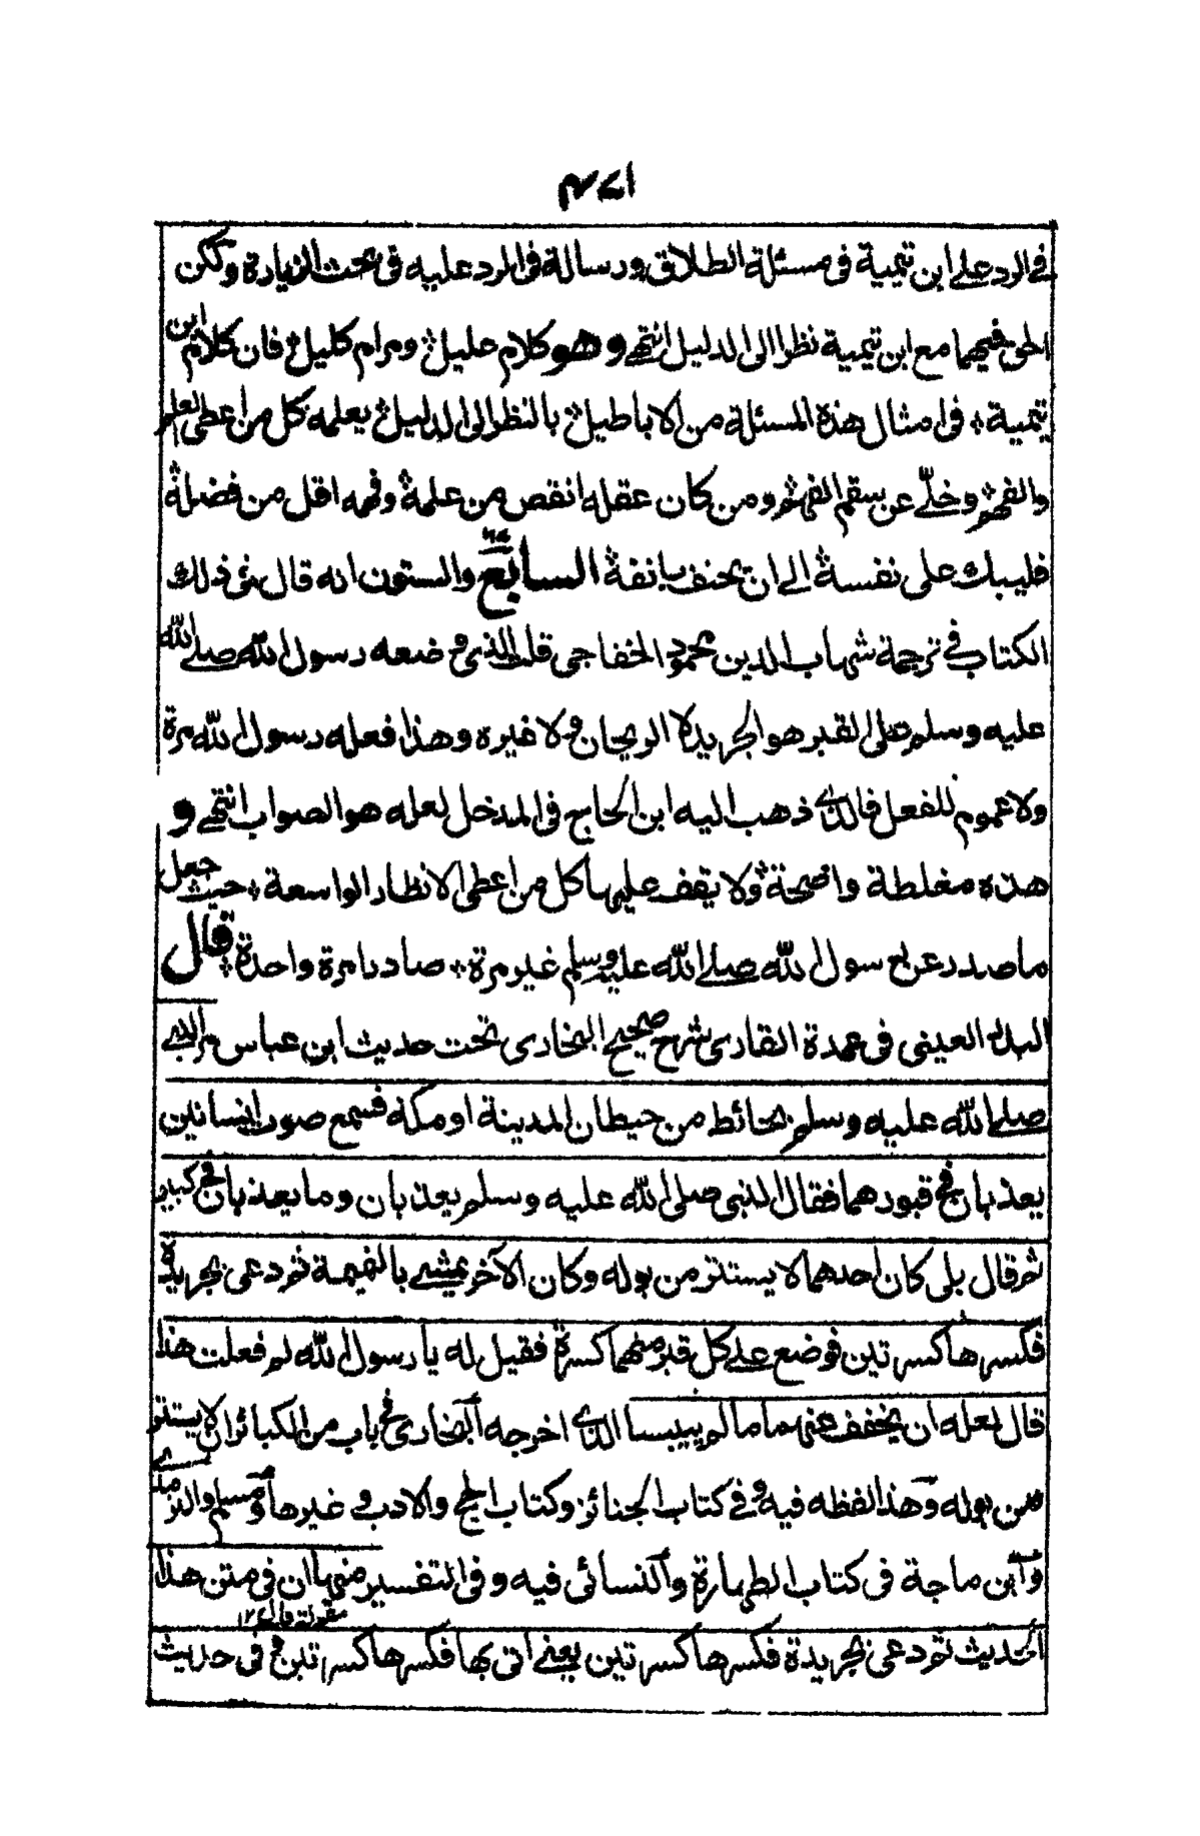 ٤٧١
في الرد على ابن تيمية فى مسئلة الطلاق ورسالة فى الرد عليه فى بحث الزيارة ولكن
الحق فيهما مع ابن تيمية نظرا الى الدليل انتهى وهو كلام عليل ومرام كليل فان كلام ابن
تيمية فى امثال هذه المسئلة من الاباطيل بالنظر الى الدليل يعلمه كل من اعطى العلم
والفهم وخلّى عن سقم الفهم ومن كان عقله انقص من علمه وفهمه اقل من فضله
فليبك على نفسه الى ان يحنف بانفه السابع والستون انه قال فى ذلك
الكتاب في ترجمة شهاب الدين محمود الخفاجى قلت الذى وضعه رسول الله صلى الله
عليه وسلم على القبر هو الجريدة لا الريحان ولا غيره وهذا فعله رسول الله مرة
ولا عموم للفعل فالذى ذهب اليه ابن الحاج فى المدخل لعله هو الصواب انتهى و
هذه مغلطة واضحة ولا يقف عليها كل من اعطى الانظار الواسعة حيث جعل
ما صدر عن رسول الله صلى الله عليه وسلم غير مرة صادرا مرة واحدة قال
البدر العينى فى عمدة القارى شرح صحيح البخارى تحت حديث ابن عباس مر النبى
صلى الله عليه وسلم بحائط من حيطان المدينة او مكة فسمع صوت انسانين
يعذبان فى قبورهما فقال النبى صلى الله عليه وسلم يعذبان وما يعذبان فى كبير
ثم قال بلى كان احدهما لا يستتر من بوله وكان الآخر يمشى بالنميمة ثم دعى بجريدة
فكسرها كسرتين فوضع على كل قبر منهما كسرة فقيل له يا رسول الله لم فعلت هذا
قال لعله ان يخفف عنهما ما لم ييبسا الذى اخرجه البخارى فى باب من الكبائر ان لا يستتر
من بوله وهذا لفظه فيه وفى كتاب الجنائز وكتاب الحج والادب وغيرها ومسلم والترمذى
وابن ماجة فى كتاب الطهارة والنسائى فيه وفى التفسير منها ان فى متن هذا
الحديث ثم دعى بجريدة فكسرها كسرتين يعنى اتى بها فكسرها كسرتين فى حديث